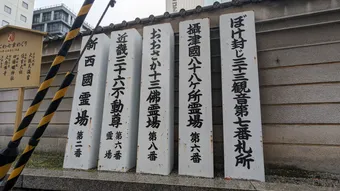 ぼけ封じ三十三観音第七番札所
摂津國八十八ケ所霊場 第六番
おおさか十三佛霊場 第八番
近畿三十六不動尊霊場 第六番
新西國霊場 第二番